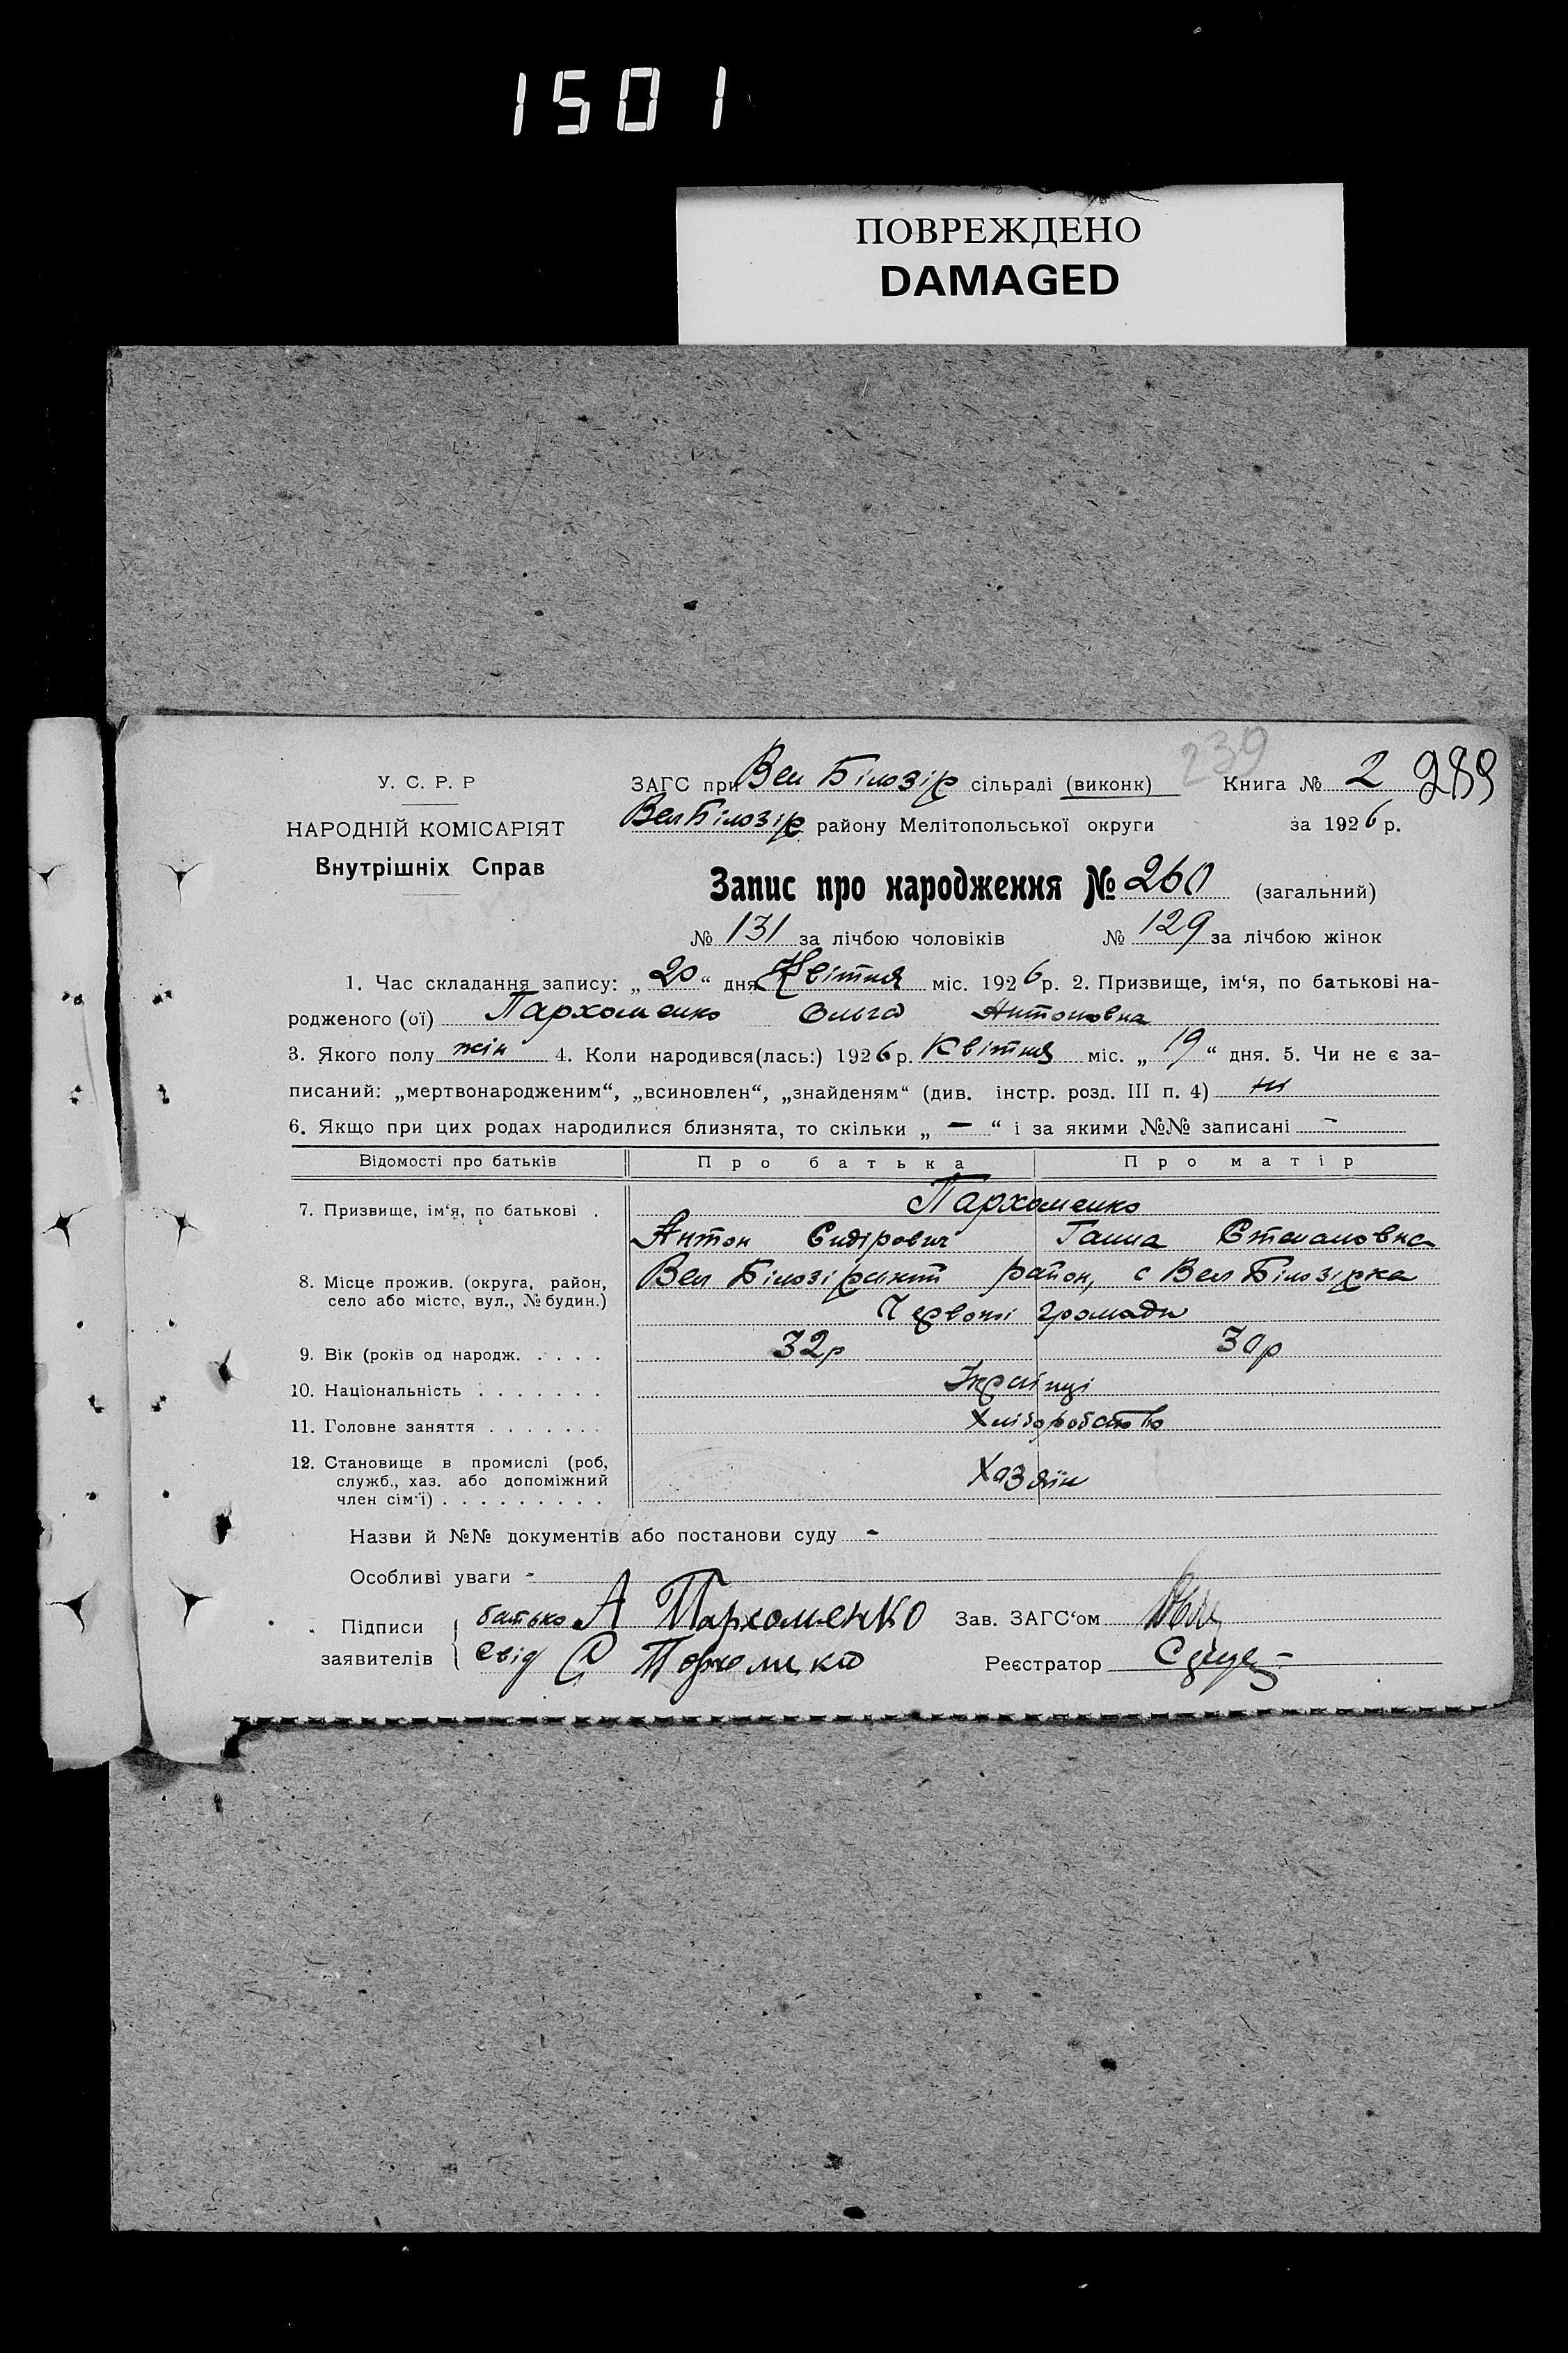 1501
ПОВРЕЖДЕНО
DAMAGED
239
У. С. Р. Р
НАРОДНІЙ КОМІСАРІЯТ
Внутрішніх Справ
ЗАГС при Вел Білозір сільраді (виконк) Книга № 2 289
Вел Білозір району Мелітопольської округи за 1926 р.
Запис про народження № 260 (загальний)
№ 131 за лічбою чоловіків № 129 за лічбою жінок
1. Час складання запису: „ 20 “ дня Квітня міс. 1926 р. 2. Призвище, ім‘я, по батькові на-
родженого (ої) Пархоменко Ольга Антоновна
3. Якого полу жін 4. Коли народився(лась:) 1926 р. Квітня міс. „ 19 “ дня. 5. Чи не є за-
писаний: „мертвонародженим“, „всиновлен“, „знайденям“ (див. інстр. розд. III п. 4) ні
6. Якщо при цих родах народилися близнята, то скільки „ — “ і за якими №№ записані –
Відомості про батьків Про батька Про матір
7. Призвище, ім‘я, по батькові . Пархоменко
Антон Сидірович Ганна Степановна
8. Місце прожив. (округа, район, село або місто, вул., № будин.) Вел Білозірський район, с Вел Білозірка
Червоної громади
9. Вік (років од народж. . . . . 32р 30р
10. Національність . . . . . . . Українці
11. Головне заняття . . . . . . . Хліборобство
12. Становище в промислі (роб, служб., хаз. або допоміжний член сім‘ї) . . . . . . . . . Хазяїн
Назви й №№ документів або постанови суду -
Особливі уваги -
Підписи заявителів { батько А Пархоменко Зав. ЗАГС‘ом
свід С Пархоменко Реєстратор